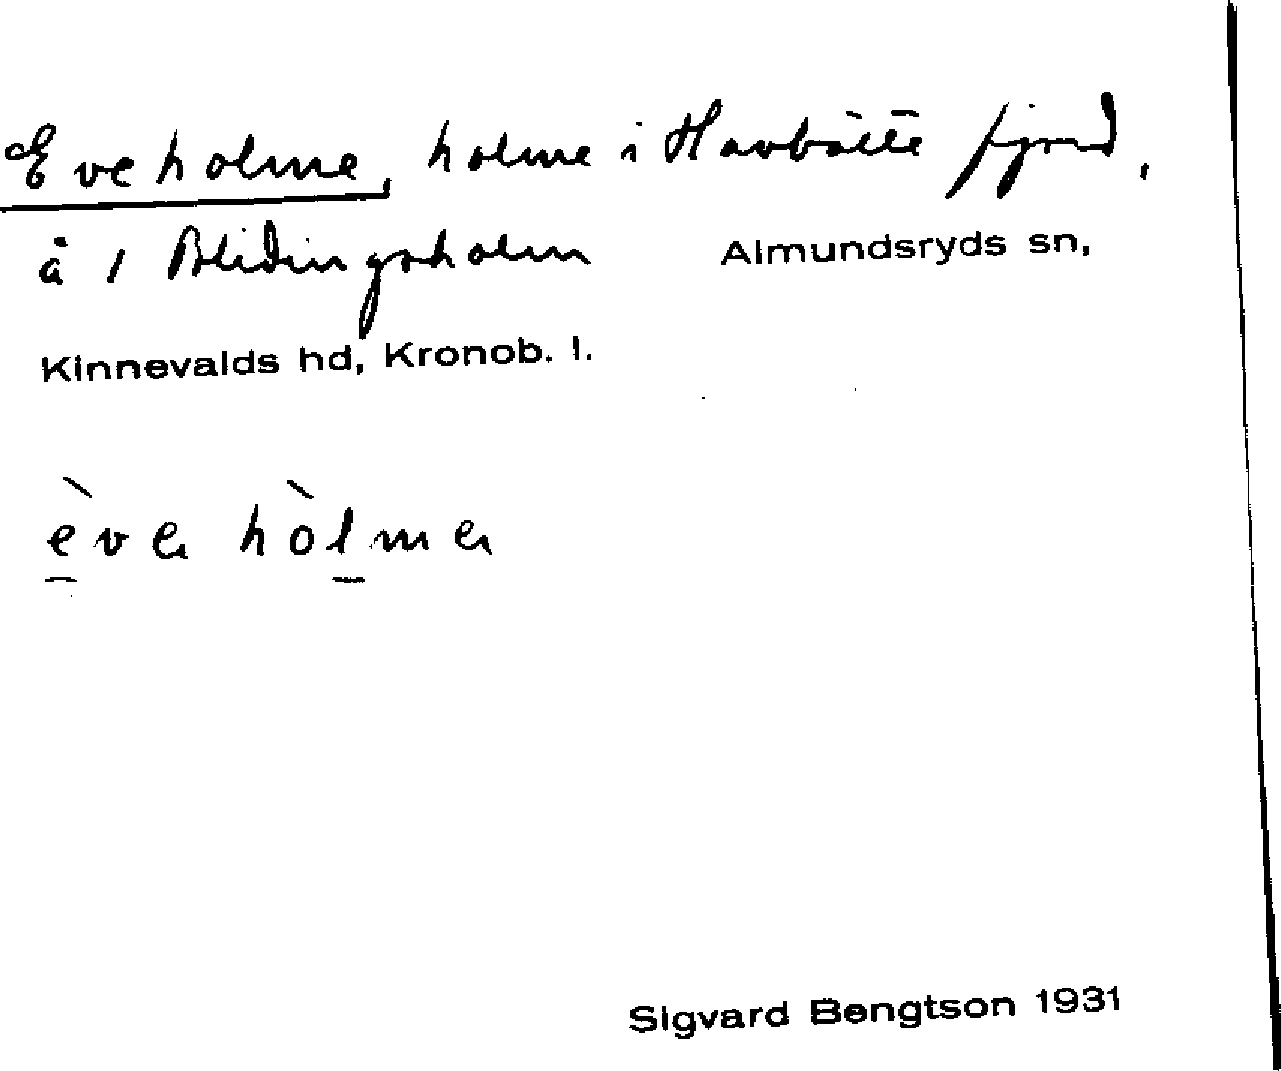 Eveholme, holme i Havbälte fjord,
å 1 Blidingsholm Almundsryds sn,
Kinnevalds hd, Kronob. l.
èvɐ hòlmɐ
Sigvard Bengtson 1931